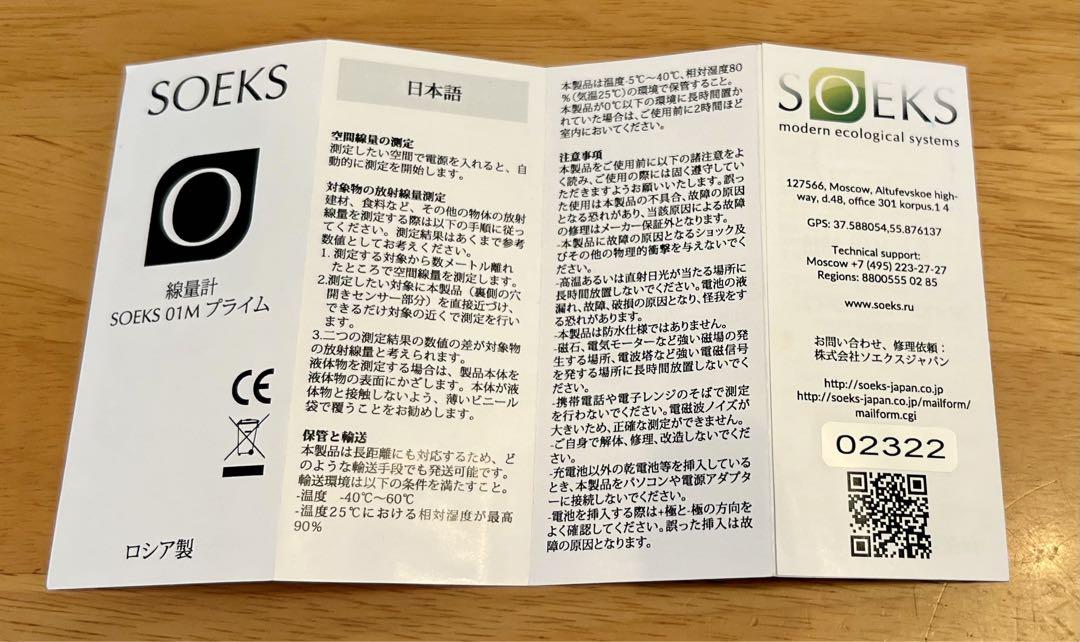 SOEKS
線量計
SOEKS 01M プライム
CE
ロシア製
日本語
空間線量の測定
測定したい空間で電源を入れると、自
動的に測定を開始します。
対象物の放射線量測定
建材、食料など、その他の物体の放射
線量を測定する際は以下の手順に従っ
てください。測定結果はあくまで参考
数値としてお考えください。
1. 測定する対象から数メートル離れ
たところで空間線量を測定します。
2.測定したい対象に本製品（裏側の穴
開きセンサー部分）を直接近づけ、
できるだけ対象の近くで測定を行い
ます。
3.二つの測定結果の数値の差が対象物
の放射線量と考えられます。
液体物を測定する場合は、製品本体を
液体物の表面にかざします。本体が液
体物と接触しないよう、薄いビニール
袋で覆うことをお勧めします。
保管と輸送
本製品は長距離にも対応するため、ど
のような輸送手段でも発送可能です。
輸送環境は以下の条件を満たすこと。
-温度　-40℃～60℃
-温度25℃における相対湿度が最高
90%
本製品は温度-5℃～40℃、相対湿度80
%（気温25℃）の環境で保管すること。
本製品が0℃以下の環境に長時間置か
れていた場合は、ご使用前に2時間ほど
室内においてください。
注意事項
本製品をご使用前に以下の諸注意をよ
く読み、ご使用の際には固く遵守してい
ただきますようお願いいたします。誤っ
た使用は本製品の不具合、故障の原因
となる恐れがあり、当該原因による故障
の修理はメーカー保証外となります。
-本製品に故障の原因となるショック及
びその他の物理的衝撃を与えないでく
ださい。
-高温あるいは直射日光が当たる場所に
長時間放置しないでください。電池の液
漏れ、故障、破損の原因となり、怪我をす
る恐れがあります。
-本製品は防水仕様ではありません。
-磁石、電気モーターなど強い磁場の発
生する場所、電波塔など強い電磁信号
を発する場所に長時間放置しないでく
ださい。
-携帯電話や電子レンジのそばで測定
を行わないでください。電磁波ノイズが
大きいため、正確な測定ができません。
-ご自身で解体、修理、改造しないでくだ
さい。
-充電池以外の乾電池等を挿入している
とき、本製品をパソコンや電源アダプタ
ーに接続しないでください。
-電池を挿入する際は+極と-極の方向を
よく確認してください。誤った挿入は故
障の原因となります。
SOEKS
modern ecological systems
127566, Moscow, Altufevskoe high-
way, d.48, office 301 korpus.1 4
GPS: 37.588054,55.876137
Technical support:
Moscow +7 (495) 223-27-27
Regions: 8800555 02 85
www.soeks.ru
お問い合わせ、修理依頼：
株式会社ソエクスジャパン
http://soeks-japan.co.jp
http://soeks-japan.co.jp/mailform/
mailform.cgi
02322